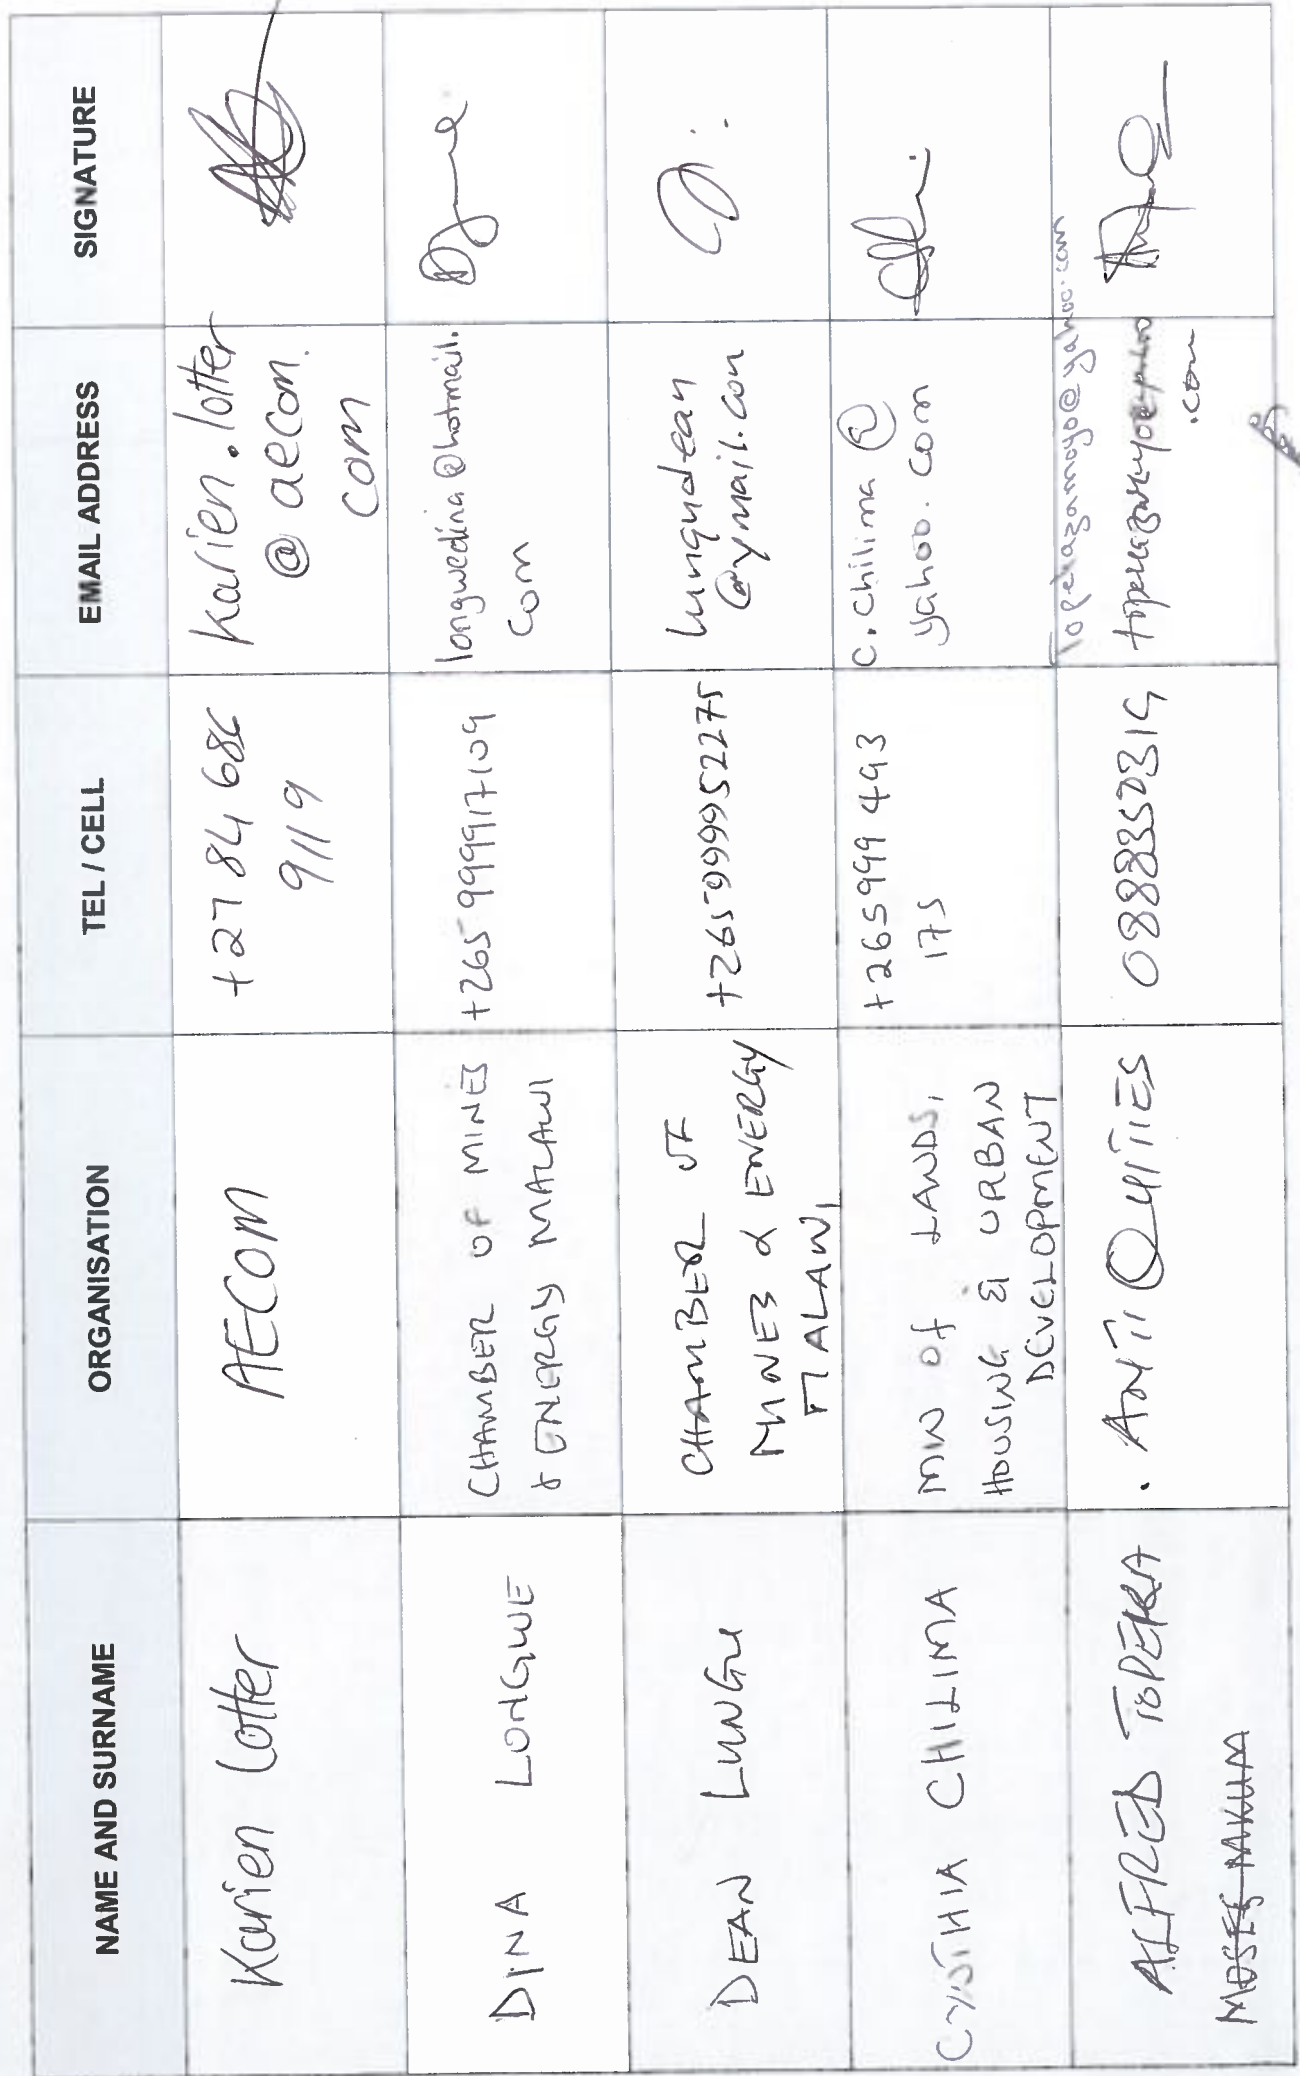 NAME AND SURNAME ORGANISATION TEL / CELL EMAIL ADDRESS SIGNATURE
Karien Lotter
AECOM
+27 84 686
9119
karien.lotter
@ aecom.
com
DINA LONGWE
CHAMBER OF MINES
& ENERGY MALAWI
+265 999917109
longwedina@hotmail.
com
DEAN LUNGU
CHAMBER OF
MINES & ENERGY
MALAWI
+265999952275
lungudean
@ymail.com
CYNTHIA CHILIMA
MIN OF LANDS,
HOUSING & URBAN
DEVELOPMENT
+265999 493
175
c.chilima @
yahoo.com
ALFRED TOPEKA
MOSES
. ANTIQUITIES
topekazamoyo@yahoo.com
.com